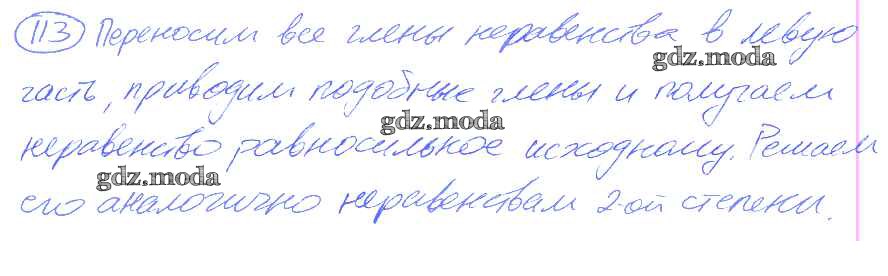 113 Переносим все члены неравенства в левую
gdz.moda
часть, приводим подобные члены и получаем
gdz.moda
неравенство равносильное исходному. Решаем
gdz.moda
его аналогично неравенствам 2-ой степени.